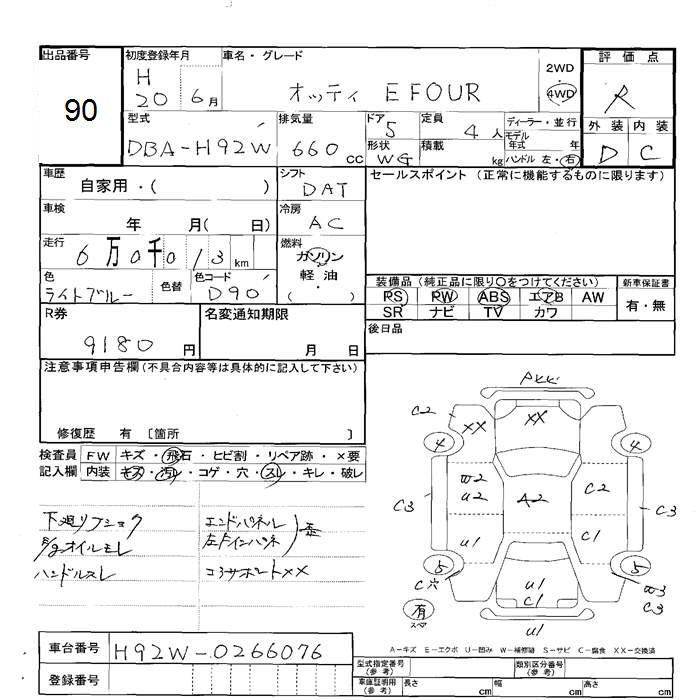 出品番号 初度登録年月 車名・グレード 評価点
90 H 20 6月 オッティ E FOUR 2WD 4WD R
型式 排気量 ドア 定員 ディーラー・並行 外装 内装
DBA-H92W 660cc 5 4人 モデル年式 年 D C
形状 WG 積載 kg ハンドル 左・右
車歴 シフト セールスポイント (正常に機能するものに限ります)
自家用・( ) DAT
車検 冷房
年 月( 日) AC
走行 燃料
6万0千013km ガソリン
色 色替 色コード 軽油
ライトブルー D90 ( ・ )
装備品 (純正品に限り〇をつけてください) 新車保証書
PS PW ABS エアB AW 有・無
SR ナビ TV カワ
R券 名変通知期限 後日品
9180円 月 日
注意事項申告欄(不具合内容等は具体的に記入して下さい)
修復歴 有 〔箇所 〕
検査員 FW キズ・飛石・ヒビ割・リペア跡・×要
記入欄 内装 キズ・汚れ・コゲ・穴・スレ・キレ・破レ
下廻リフショク エンドパネル
E/gオイルモレ 左Fインパネ 歪
ハンドルスレ コアサポートXX
C2 XX XX
4 4
W2 U2 A2 C2
C3 C3
U1 C1
5 5
C穴 U1 C1 W3 C3
有 スペア U1
A-キズ E-エクボ U-凹み W-補修跡 S-サビ C-腐食 XX-交換済
車台番号 H92W-0266076
型式指定番号 (参考) 類別区分番号 (参考)
登録番号 車庫証明用 (参考) 長さ cm 幅 cm 高さ cm